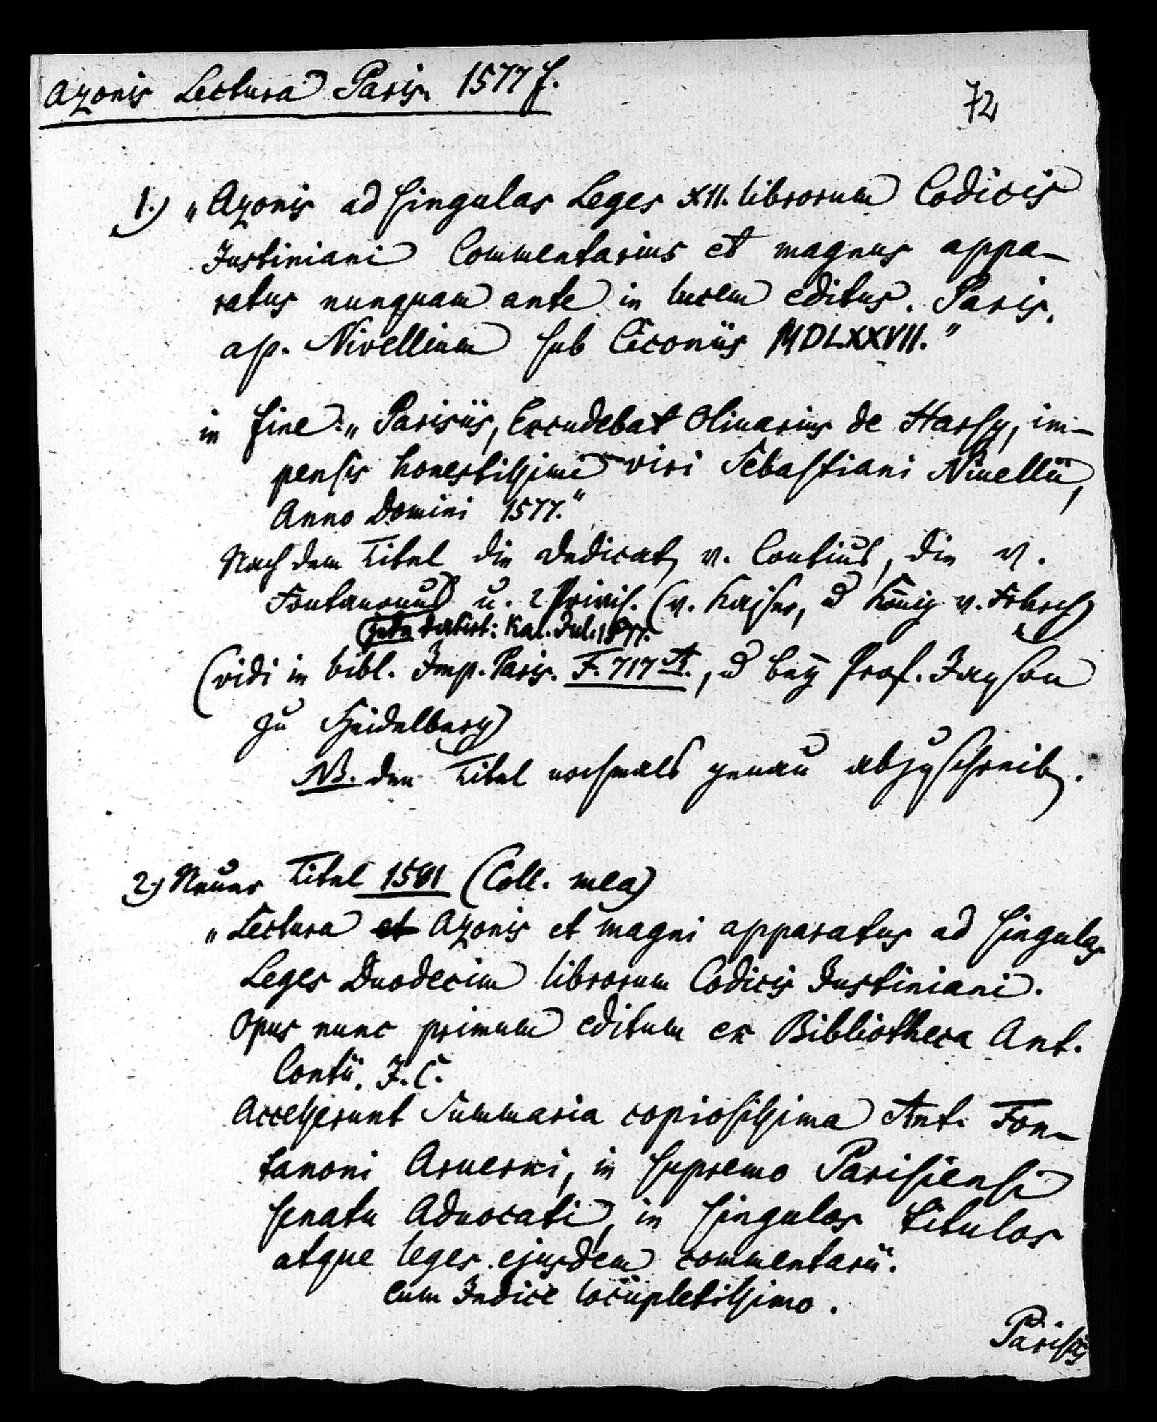 Azonis Lectura Paris. 1577 f.
72
1.) „Azonis ad singulas Leges XII. librorum Codicis
Justiniani Commentarius et magnus appa-
ratus nunquam ante in lucem editus. Paris.
ap. Nivellium sub Ciconiis MDLXXVII."
in fine: „Parisiis, Excudebat Oliuarius de Harsy, im-
pensis honestissimi viri Sebastiani Niuellii,
Anno Domini 1577."
Nach dem Titel die Dedicat. v. Contius, die v.
Fontanonus u. 2 Privil. (v. Kaiser, d König v.
datirt: Kal. Jul. 1577.
(vidi in bibl. Imp. Paris. F. 717 A., d bey Prof.
zu Heidelberg)
NB. den Titel nochmals genau abzuschreib.
2.) Neuer Titel 1581 (Coll. mea)
„Lectura et Azonis et magni apparatus ad singulas
Leges Duodecim librorum Codicis Justiniani.
Opus nunc primum editum ex Bibliotheca Ant.
Contii. J. C.
Accesserunt Summaria copiosissima Ant. Fon-
tanoni Aruerni, in supremo Parisiensi
senatu Aduocati, in singulos titulos
atque leges ejusdem commentarii.
cum Indice locupletissimo.
Parisiis